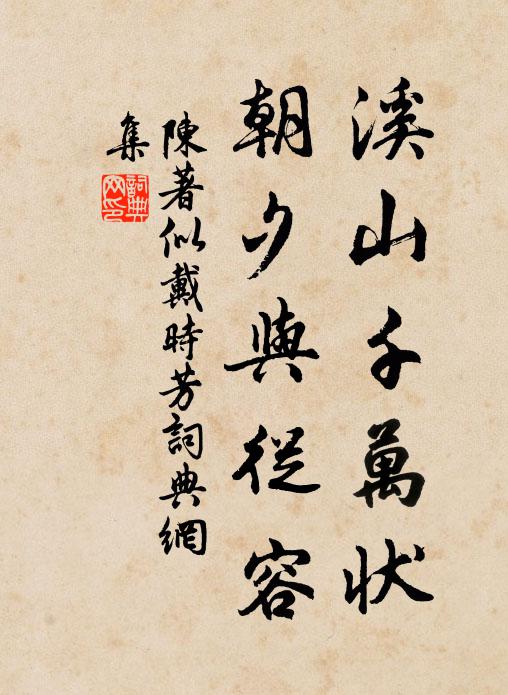 溪山千萬狀
朝夕與從容
陳著似戴時芳詞典網
集
詞典
网印